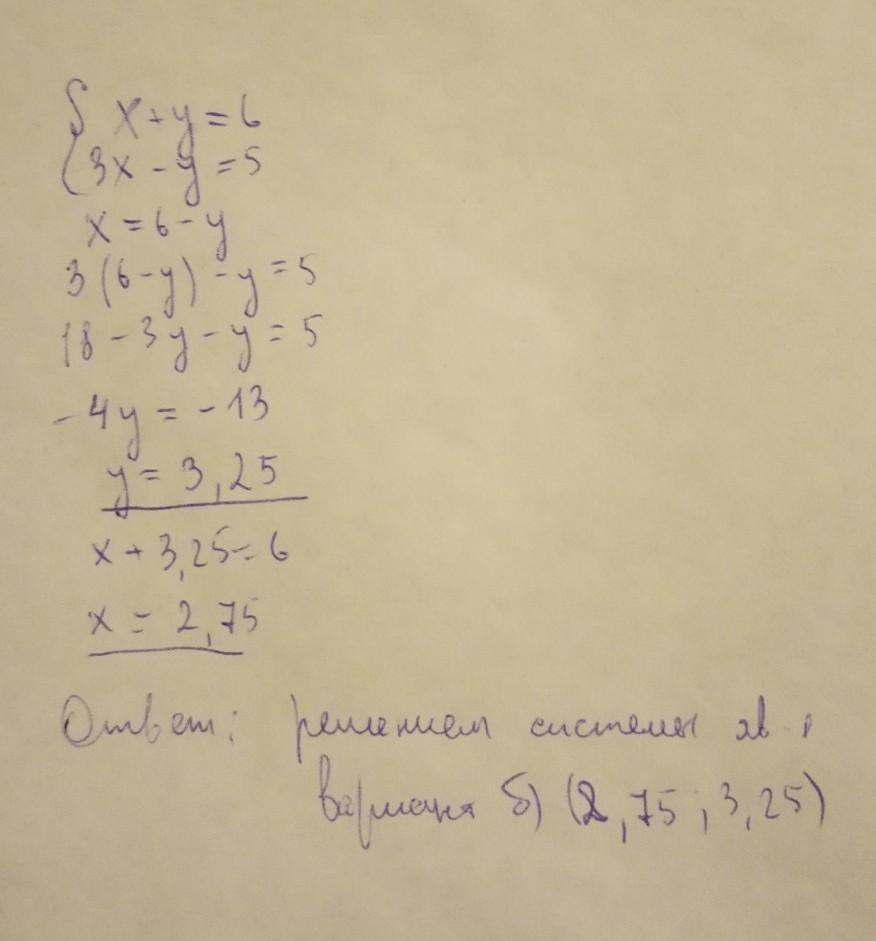 { x + y = 6
3x - y = 5
x = 6 - y
3(6-y) - y = 5
18 - 3y - y = 5
-4y = -13
y = 3,25
x + 3,25 = 6
x = 2,75
Ответ: решением системы яв.
б) (2,75; 3,25)